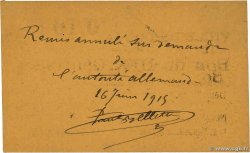 Remis annulé sur demande
de
l'autorité allemande
16 Juin 1915